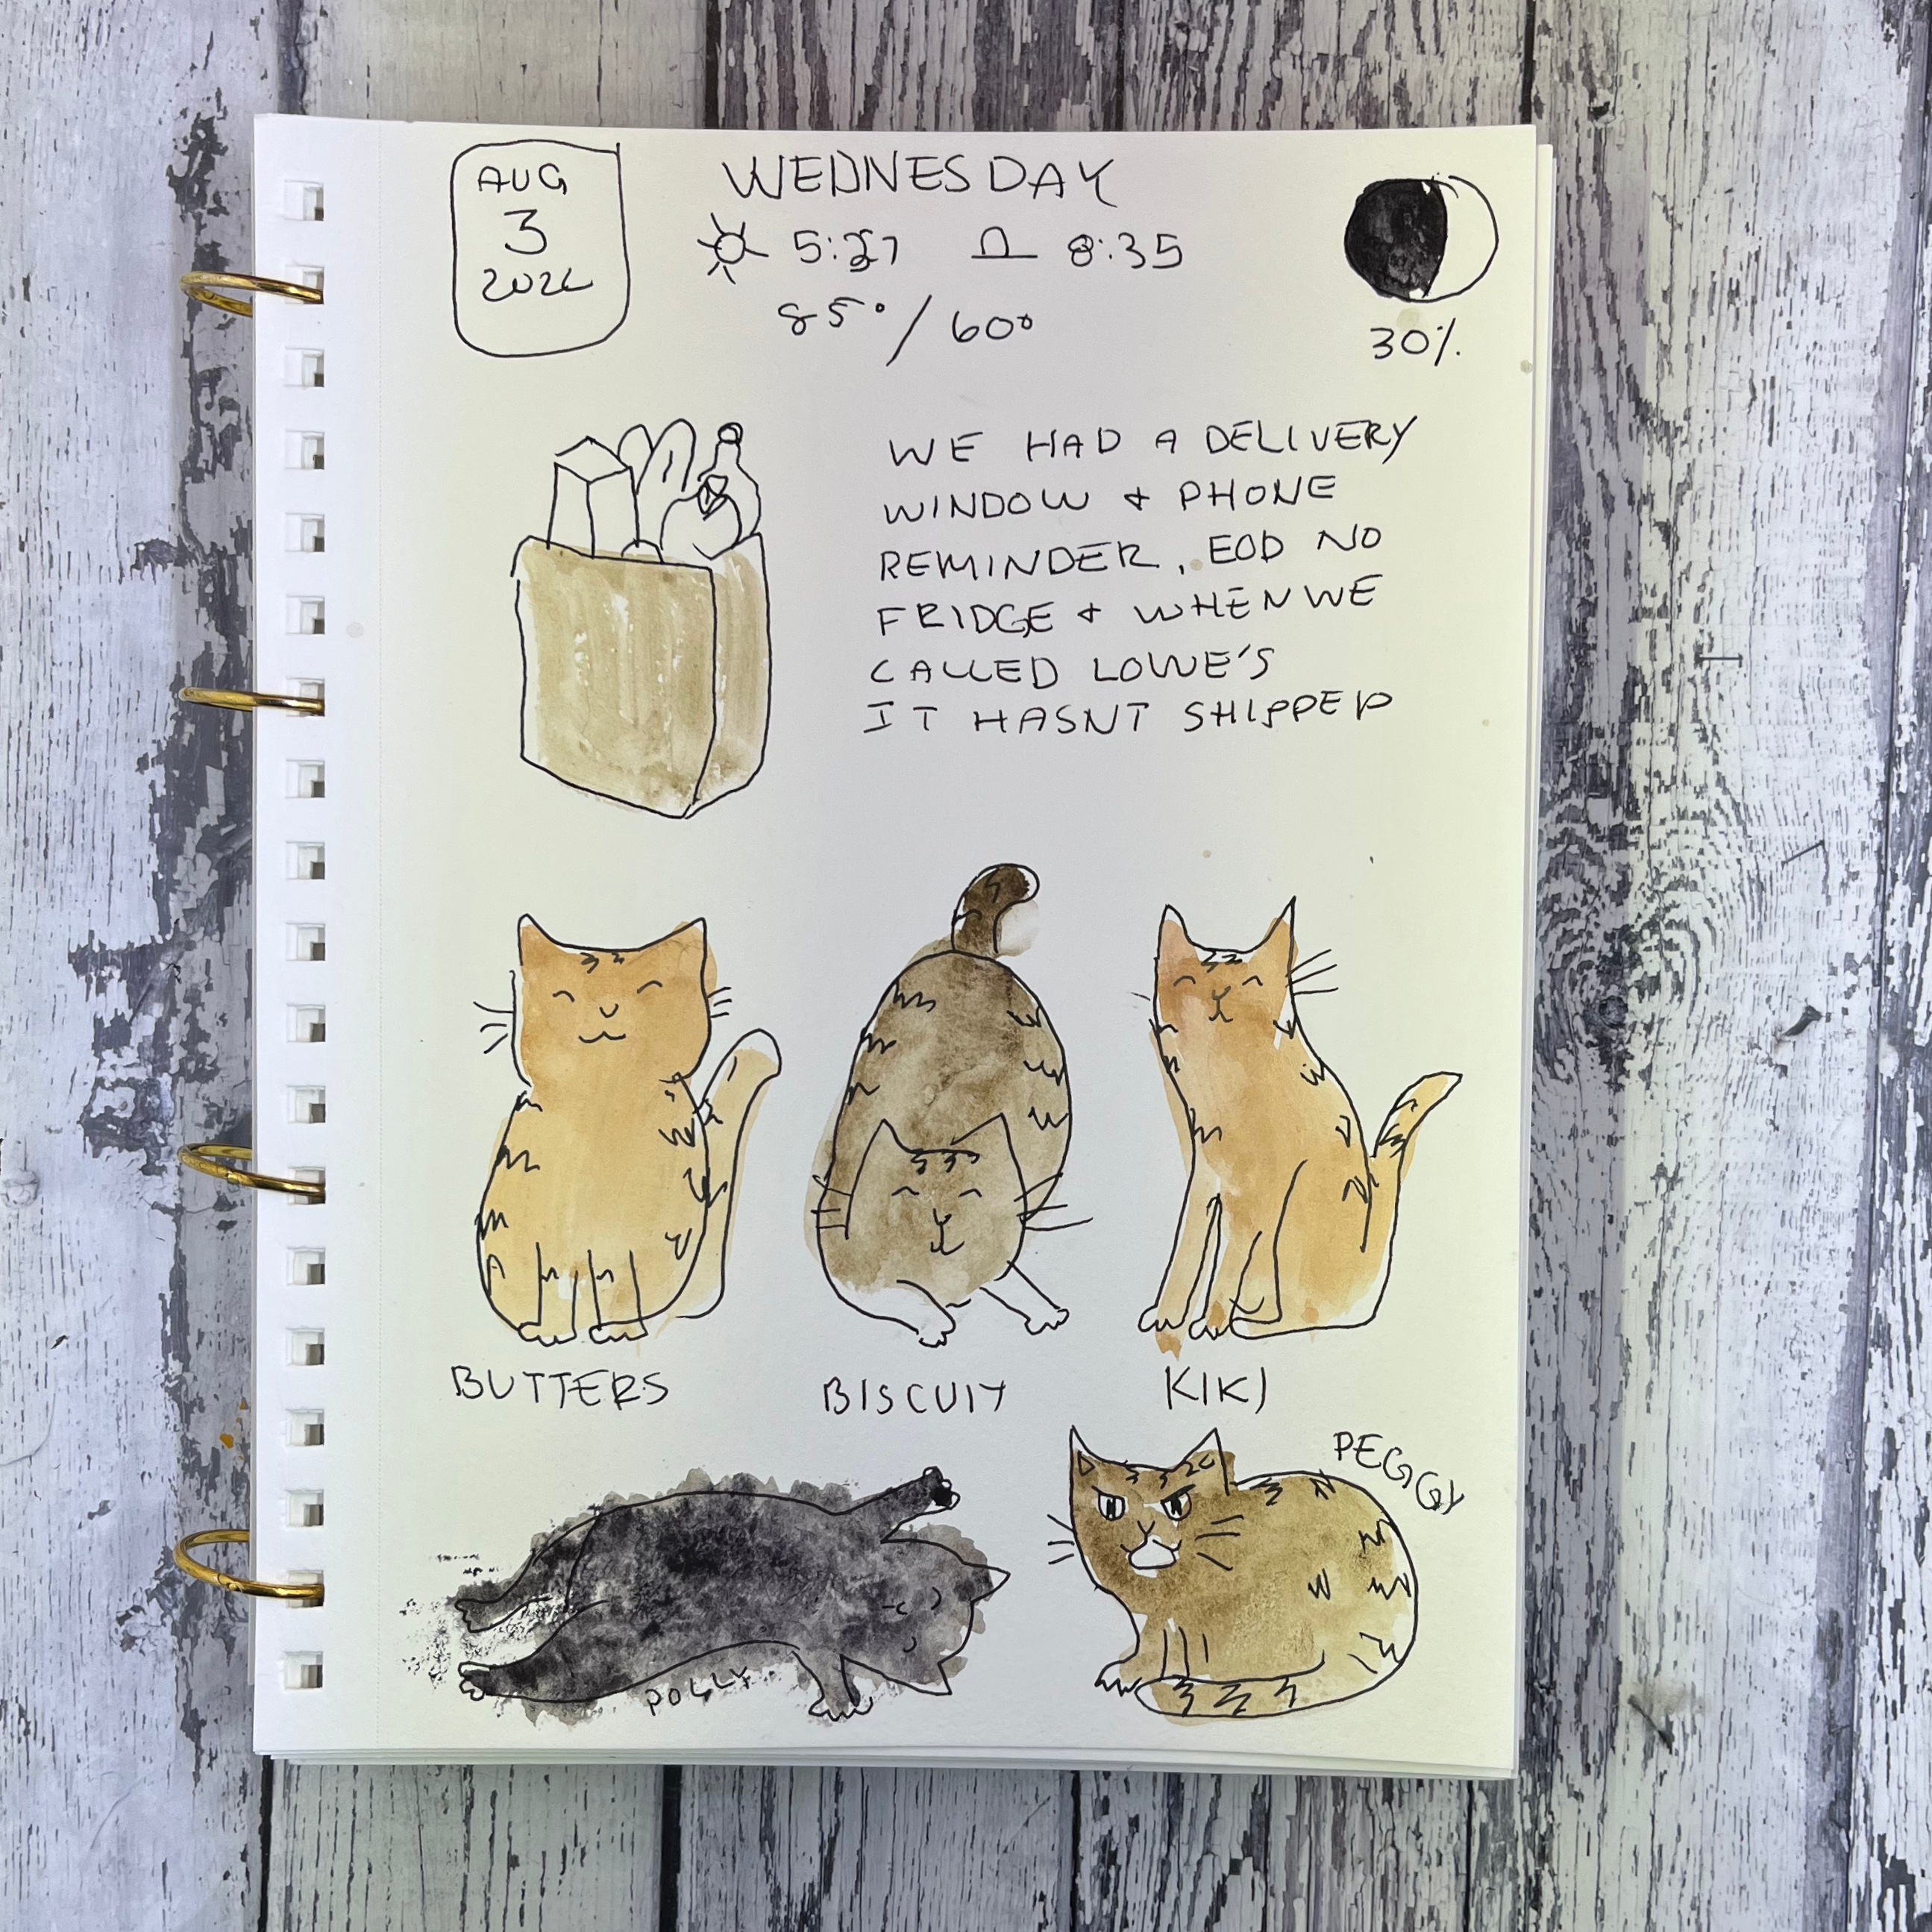 AUG
3
2022
WEDNESDAY
5:27 8:35
85°/60°
30%
WE HAD A DELIVERY
WINDOW & PHONE
REMINDER, EOD NO
FRIDGE & WHEN WE
CALLED LOWE'S
IT HASNT SHIPPED
BUTTERS
BISCUIT
KIKI
PEGGY
POLLY